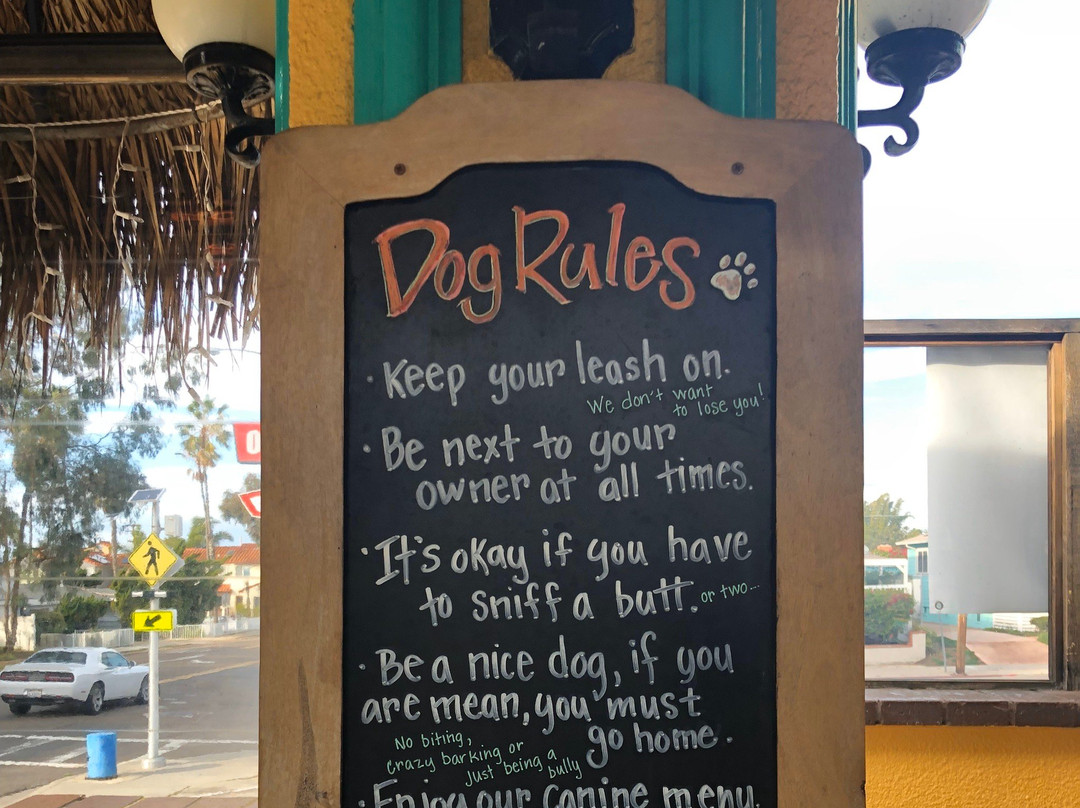 Dog Rules
· Keep your leash on.
We don't want
to lose you!
· Be next to your
owner at all times.
· It's okay if you have
to sniff a butt. or two...
· Be a nice dog, if you
are mean, you must
go home.
No biting,
crazy barking or
just being a
bully
· Enjoy our canine menu.